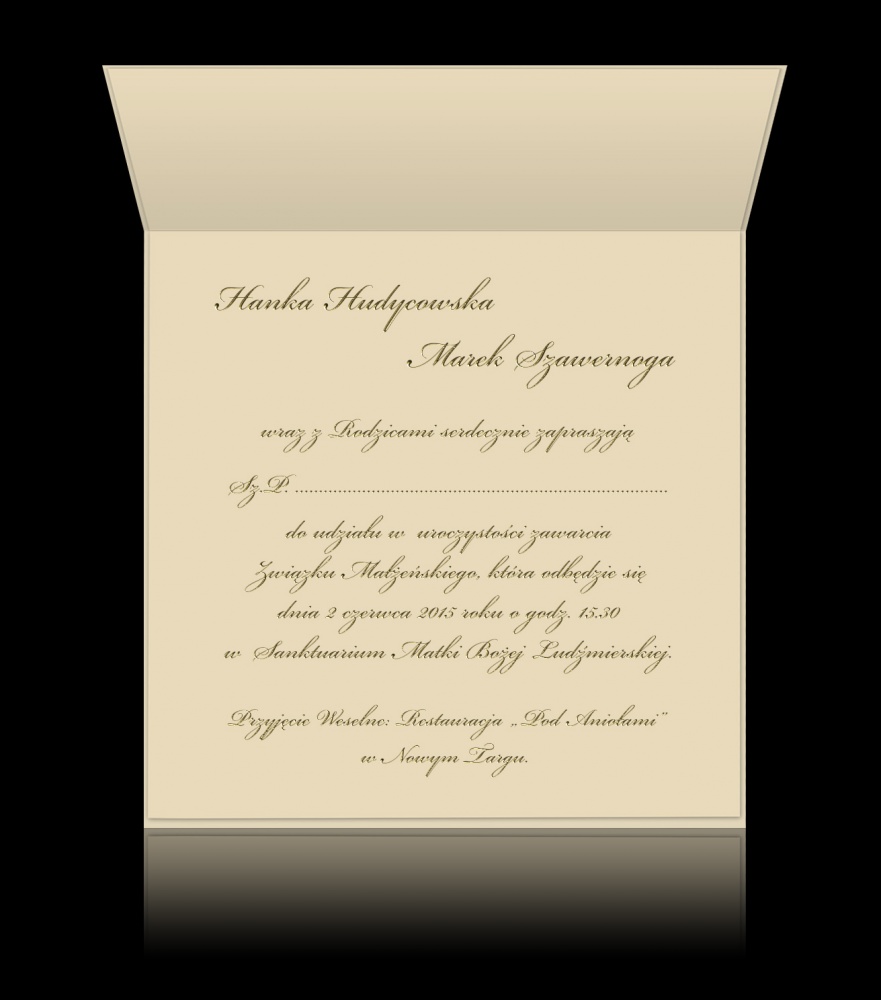 Hanka Hudycowska
Marek Szawernoga
wraz z Rodzicami serdecznie zapraszają
Sz.P. ....................................................................................
do udziału w uroczystości zawarcia
Związku Małżeńskiego, która odbędzie się
dnia 2 czerwca 2015 roku o godz. 15.30
w Sanktuarium Matki Bożej Ludźmierskiej.
Przyjęcie Weselne: Restauracja „Pod Aniołami”
w Nowym Targu.